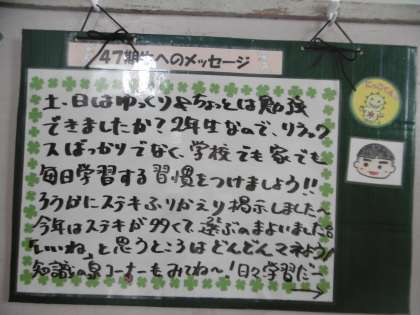 47期生へのメッセージ
土、日はゆっくり&ちょっとは勉強
できましたか?2年生なので、リラック
スばっかりでなく、学校でも家でも
毎日学習する習慣をつけましょう!!
ろうかにステキふりかえり掲示しました〜
今年はステキが多くて、選ぶのまよいました。
「いいね」と思うところはどんどんマネよう!
知識の泉コーナーもみてね〜!日々学習だー